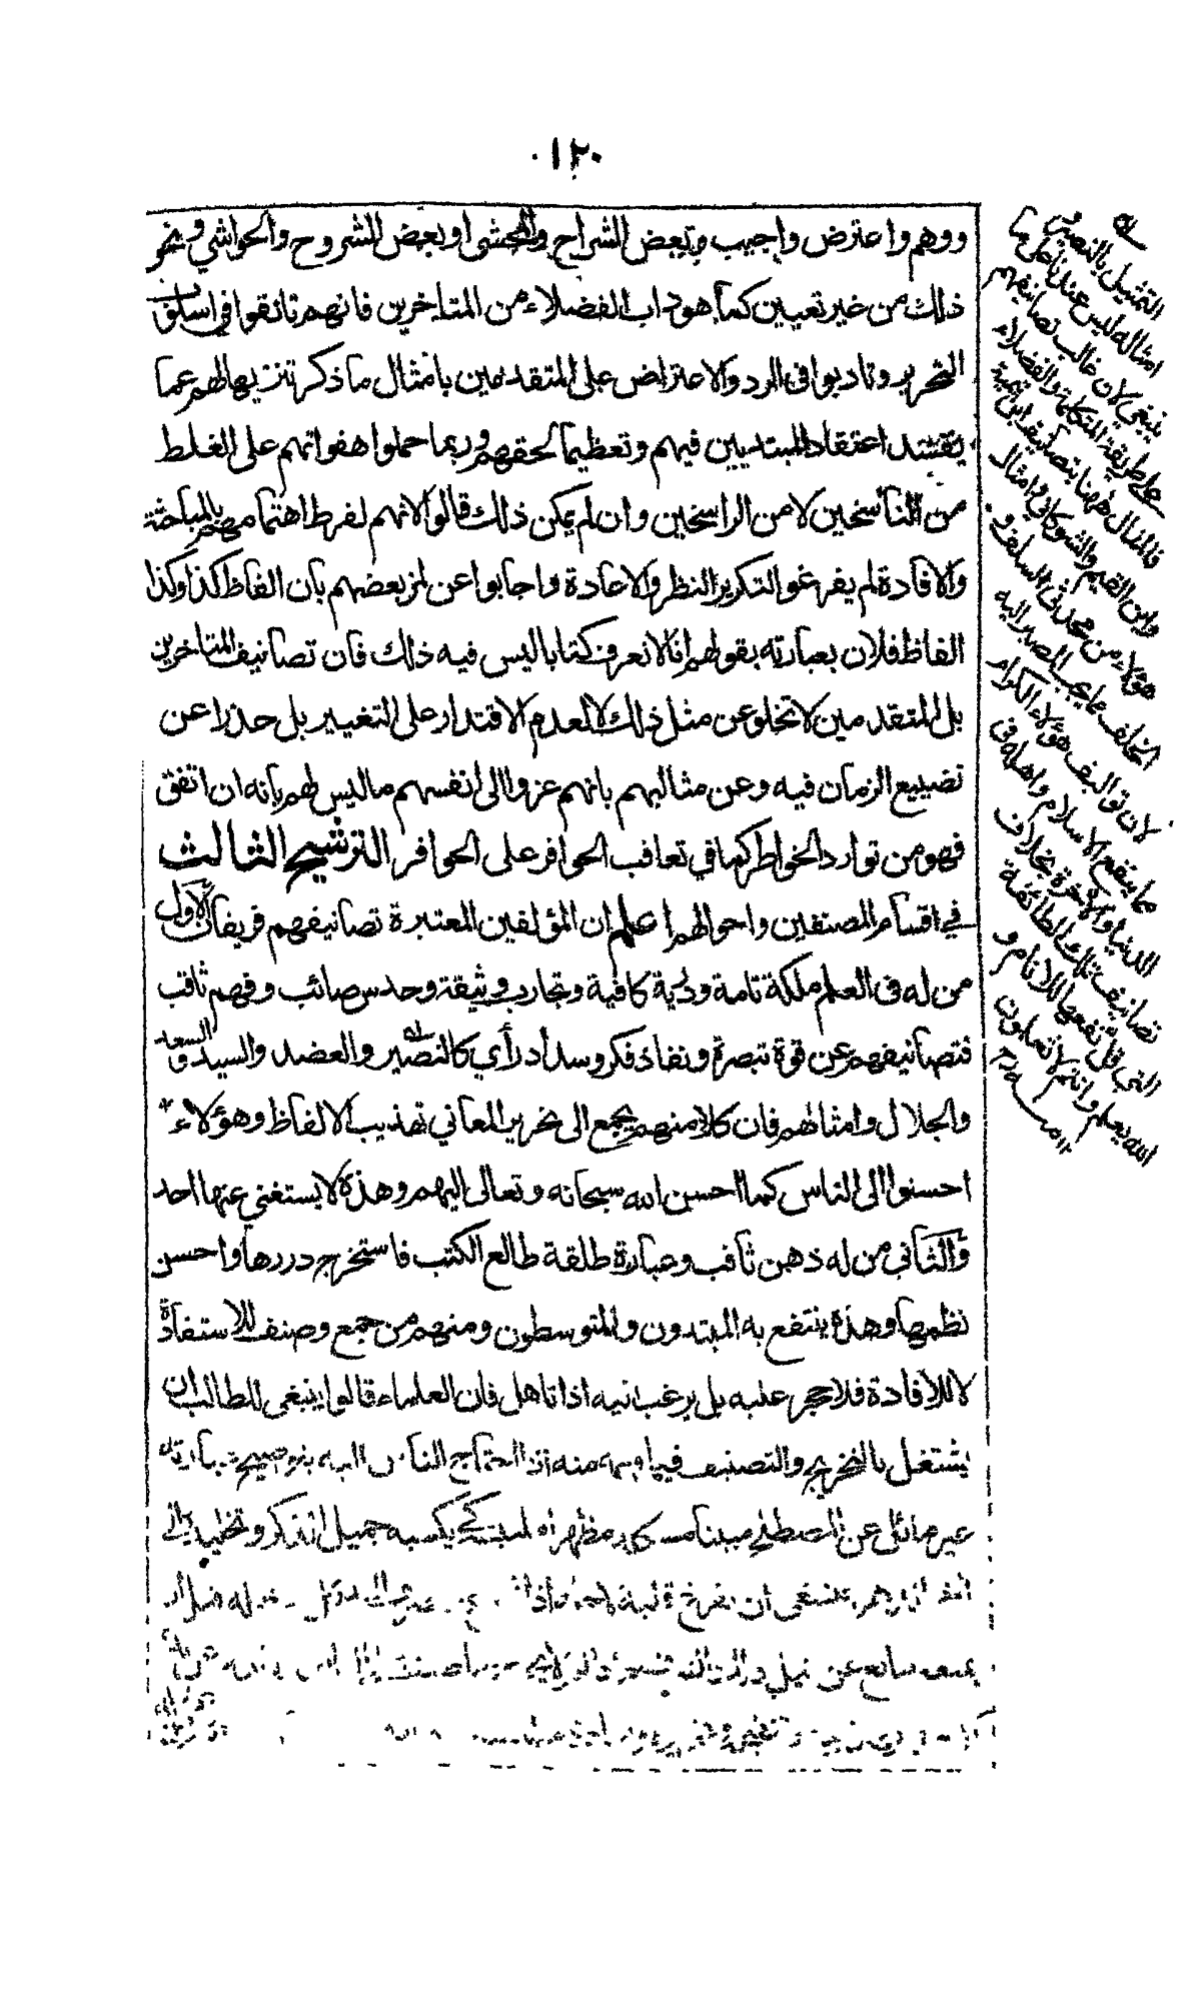 ١٢٠
ووهم واعترض واجيب وبعض الشراح والمحشى اوبعض الشروح والحواشي ونحو
ذلك من غير تعيين كما هو داب الفضلاء من المتاخرين فانهم تانقوا في اسلوب
التحرير وتادبوا فى الرد والاعتراض على المتقدمين بامثال ما ذكر تنزيها لهم عما
يفسد اعتقاد المبتديين فيهم وتعظيما لحقهم وربما حملوا هفواتهم على الغلط
من الناسخين لا من الراسخين وان لم يمكن ذلك قالوا لانهم لفرط اهتمامهم بالمباحثة
والافادة لم يفرغوا لتكرير النظر والاعادة واجابوا عن لمز بعضهم بان الفاظ كذا وكذا
الفاظ فلان بعبارته بقولهم انا لا نعرف كتابا ليس فيه ذلك فان تصانيف المتاخرين
بل المتقدمين لا تخلو عن مثل ذلك لا لعدم الاقتدار على التغيير بل حذرا عن
تضييع الزمان فيه وعن مثالبهم بانهم عزوا الى انفسهم ما ليس لهم بانه ان اتفق
فهو من توارد الخواطر كما في تعاقب الحوافر على الحوافر الترشيح الثالث
في اقسام المصنفين واحوالهم اعلم ان المؤلفين المعتبرة تصانيفهم فريقان الاول
من له فى العلم ملكة تامة ودربة كافية وتجارب وثيقة وحدس صائب وفهم ثاقب
فتصانيفهم عن قوة تبصرة ونفاذ فكر وسداد رأي كالنصير والعضد والسيد والسعد
والجلال وامثالهم فان كلا منهم يجمع الى تحرير المعاني تهذيب الالفاظ وهؤلاء
احسنوا الى الناس كما احسن الله سبحانه وتعالى اليهم وهذه لا يستغني عنها احد
والثاني من له ذهن ثاقب وعبارة طلقة طالع الكتب فاستخرج دررها واحسن
نظمها وهذه ينتفع به المبتدون والمتوسطون ومنهم من جمع وصنف للاستفادة
لا للافادة فلا حجر عليه بل يرغب اليه اذا تاهل فان العلماء قالوا ينبغى للطالب ان
يشتغل بالتخريج والتصنيف فيما فهمه منه اذا احتاج الناس اليه بتوضيح عبارته
غير مائل عن المصطلح مبينا مشكله مظهرا ملتبسه كي يكسبه جميل الذكر وتخليده الى
فينبغى ان يفرغ قلبه
عن نيل
التمثيل بالنصير
امثاله ليس عندنا كما
ينبغي لان غالب تصانيفهم
على طريقة المتكلمة والفضلاء
فالمثال ههنا بتصانيف ابن تيمية
وابن القيم والشوكاني وامثال
هؤلاء من محدثي السلف و
الخلف مما يجب المصير اليه
لان تواليف هؤلاء الكرام
مما ينفع الاسلام واهله فى
الدنيا والآخرة بخلاف
تصانيف تلك الطائفة
التي قل نفعها للانام و
الله يعلم وانتم لا تعلمون